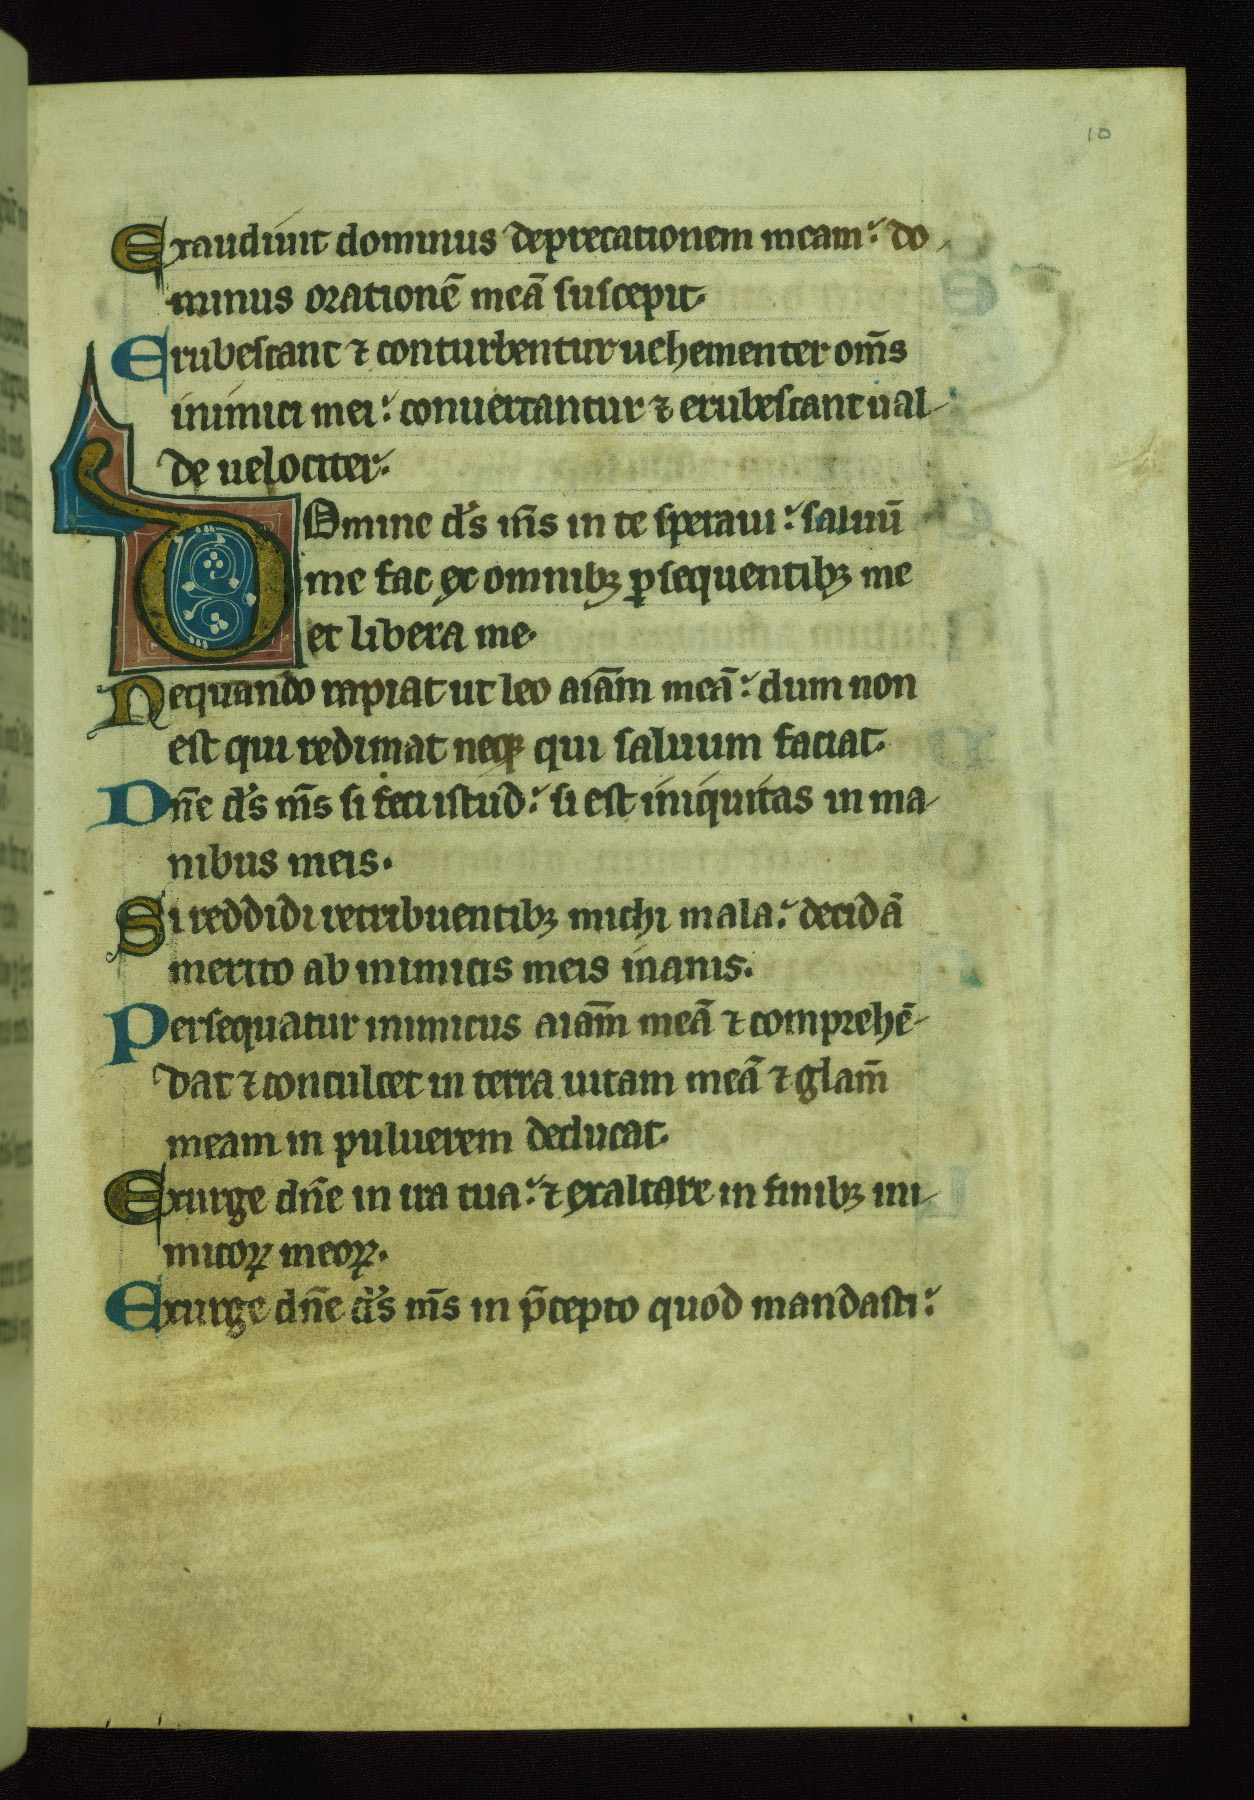 10
Exaudiuit dominus deprecationem meam: do
minus orationē meā suscepit.
Erubescant ⁊ conturbentur uehementer om̄s
inimici mei: conuertantur ⁊ erubescant ual-
de uelociter.
Domine d's m̄s in te speraui: saluū
me fac ex omnibꝫ ꝑsequentibꝫ me
et libera me.
Nequando rapiat ut leo aīam meā: dum non
est qui redimat neqꝫ qui saluum faciat.
Dn̄e d's m̄s si feci istud: si est iniquitas in ma-
nibus meis.
Si reddidi retribuentibꝫ michi mala: decidā
merito ab inimicis meis inanis.
Persequatur inimicus aīam meā ⁊ comprehē-
dat ⁊ conculcet in terra uitam meā ⁊ glam̄
meam in puluerem deducat.
Exurge dn̄e in ira tua: ⁊ exaltare in finibꝫ ini-
micoꝝ meoꝝ.
Exurge dn̄e d's m̄s in p̄cepto quod mandasti: